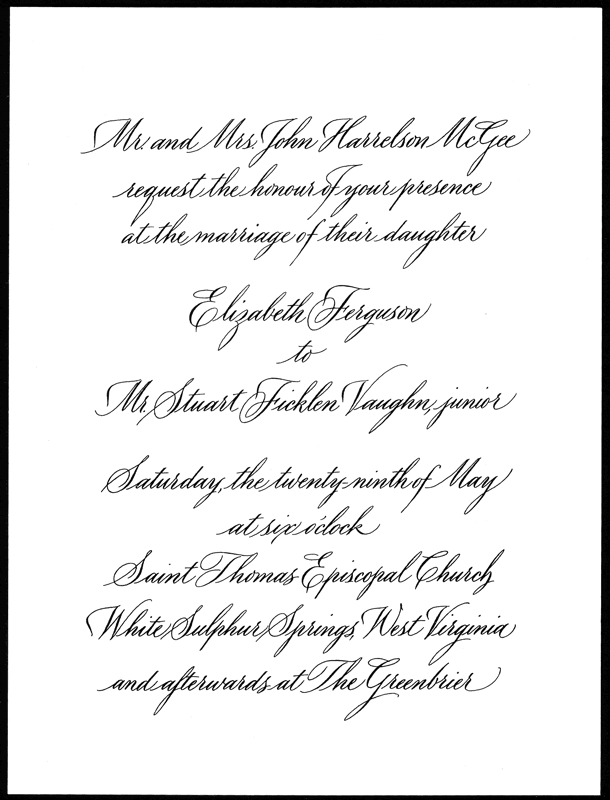 Mr. and Mrs. John Harrelson McGee
request the honour of your presence
at the marriage of their daughter
Elizabeth Ferguson
to
Mr. Stuart Ficklen Vaughn, junior
Saturday, the twenty-ninth of May
at six o'clock
Saint Thomas Episcopal Church
White Sulphur Springs, West Virginia
and afterwards at The Greenbrier